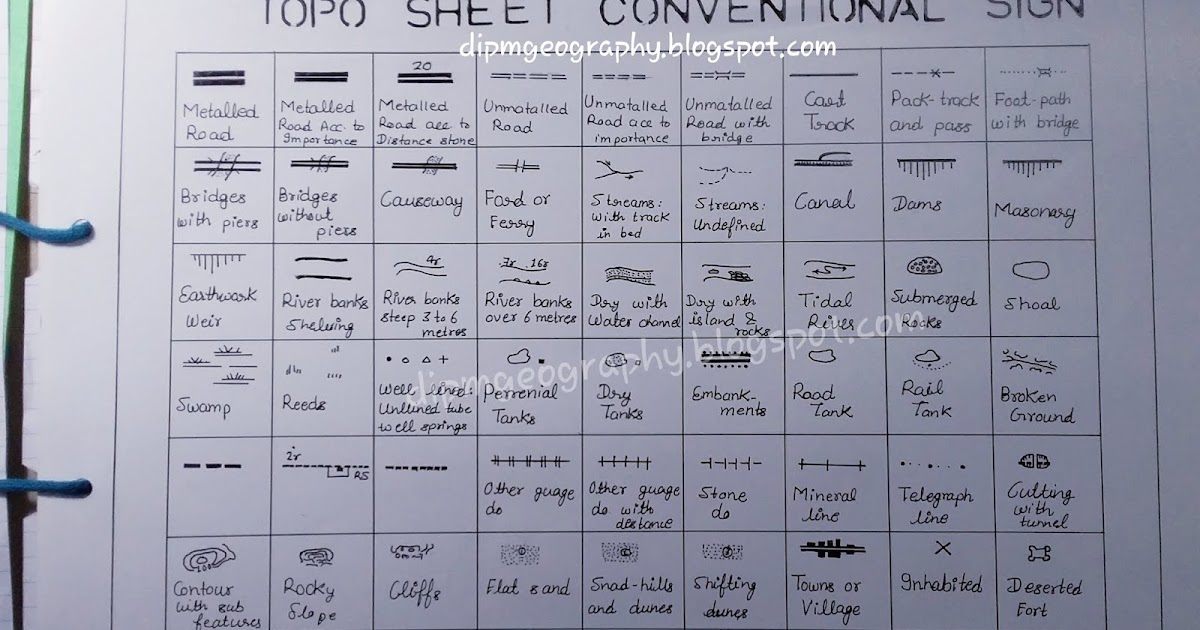 TOPO SHEET CONVENTIONAL SIGN
dipmgeography.blogspot.com
Metalled
Road
Metalled
Road Acc. to
Importance
20
Metalled
Road acc to
Distance stone
Unmatalled
Road
Unmatalled
Road acc to
importance
Unmatalled
Road with
bridge
Cart
Track
Pack-track
and pass
Foot-path
with bridge
Bridges
with piers
Bridges
without
piers
Causeway
Ford or
Ferry
Streams:
with track
in bed
Streams:
Undefined
Canal
Dams
Masonary
Earthwork
Weir
River banks
Shelving
4r
River banks
steep 3 to 6
metres
7r 16r
River banks
over 6 metres
Dry with
Water channel
Dry with
island &
rocks
Tidal
River
Submerged
Rocks
Shoal
dipmgeography.blogspot.com
Swamp
Reeds
Well lined:
Unlined tube
well springs
Perrenial
Tanks
Dry
Tanks
Embank-
ments
Road
Tank
Rail
Tank
Broken
Ground
2r
RS
Other guage
do
Other guage
do with
destance
Stone
do
Mineral
line
Telegraph
line
Cutting
with
tunnel
Contour
with sub
features
Rocky
Slope
Cliffs
Flat sand
Snad-hills
and dunes
Shifting
dunes
Towns or
Village
Inhabited
Deserted
Fort